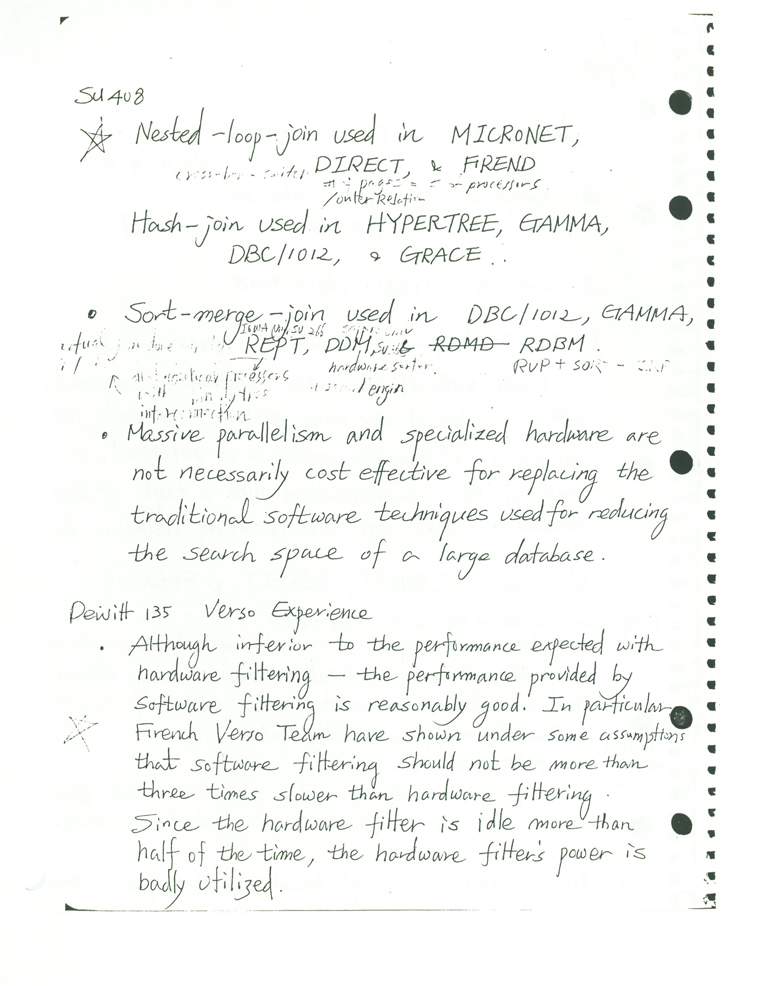 SU 408
☆ Nested-loop-join used in MICRONET,
DIRECT, & FIREND
pages = processors
/outer Relation
Hash-join used in HYPERTREE, GAMMA,
DBC/1012, & GRACE..
• Sort-merge-join used in DBC/1012, GAMMA,
REPT, DDM, & RDMD RDBM.
processors hardware sorter RVP + SORT -
with engin
interconnection
• Massive parallelism and specialized hardware are
not necessarily cost effective for replacing the
traditional software techniques used for reducing
the search space of a large database.
Dewitt 135 Verso Experience
• Although inferior to the performance expected with
hardware filtering – the performance provided by
Software filtering is reasonably good. In particular
☆ Firench Verso Team have shown under some assumptions
that software filtering should not be more than
three times slower than hardware filtering.
Since the hardware filter is idle more than
half of the time, the hardware filter's power is
badly utilized.